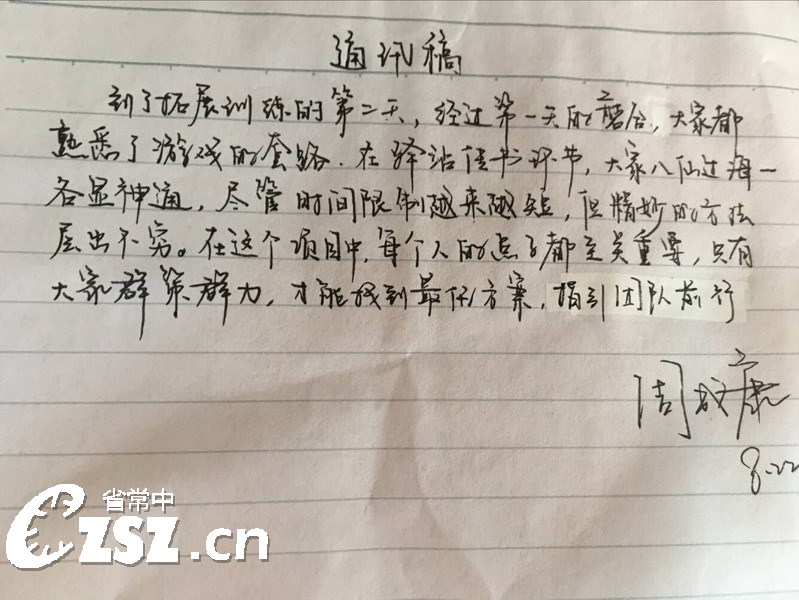 通讯稿
到了拓展训练的第二天，经过第一天的磨合，大家都
熟悉了游戏的套路.在驿站传书环节，大家八仙过海一
各显神通，尽管时间限制越来越短，但精妙的方法
层出不穷。在这个项目中，每个人的点子都至关重要，只有
大家群策群力，才能找到最佳方案，指引团队前行
周成康
8.22
省常中
czsz.cn